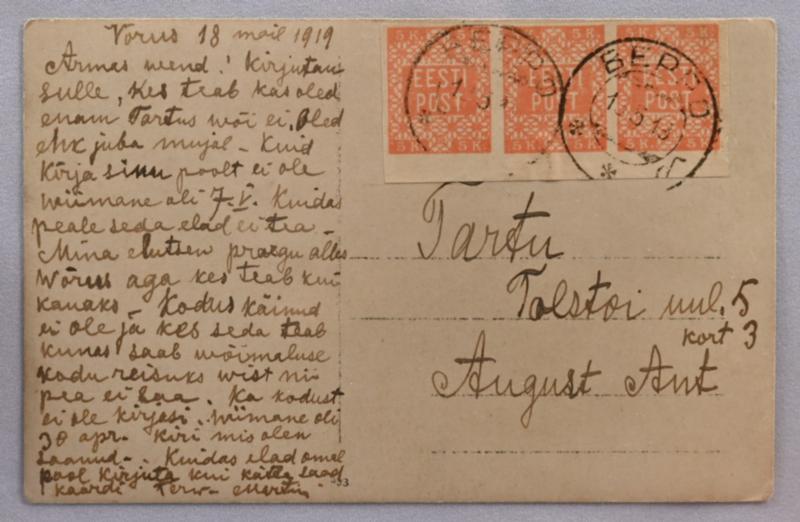 Vorus 18 mail 1919
Armas wend! Kirjutan
sulle, kes teab kas oled
enam Tartus wõi ei. Oled
ehk juba mujal - Kuid
Kirja sinu poolt ei ole
wiimane oli 7. V. Kuidas
peale seda elad ei tea -
Mina elutsen praegu alles
Wõrus aga kes teab kui
kauaks - Kodus käinud
ei ole ja kes seda teab
kunas saab wõimaluse
kodu reisuks wist nii
pea ei saa. Ka kodust
ei ole kirjasi. Wiimane oli
30 apr. Kiri mis olen
saanud - . Kuidas elad omal
pool kirjuta kui kätte saad
kaardi Terw - Martin
5 K 5 K 5 K
EESTI POST
EESTI POST
EESTI POST
5 K 5 K 5 K
ВЕРРО
ВЕРРО
Tartu
Tolstoi uul. 5
kort 3
August Ant